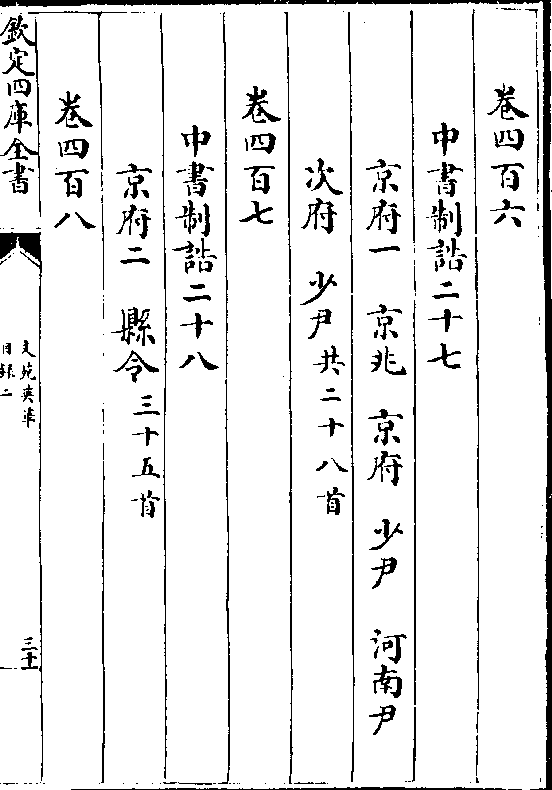 卷四百六
中書制誥二十七
京府一 京兆 京府 少尹 河南尹
次府 少尹共二十八首
卷四百七
中書制誥二十八
京府二 縣令三十五首
卷四百八
欽定四庫全書
文苑英華
目録二
三十